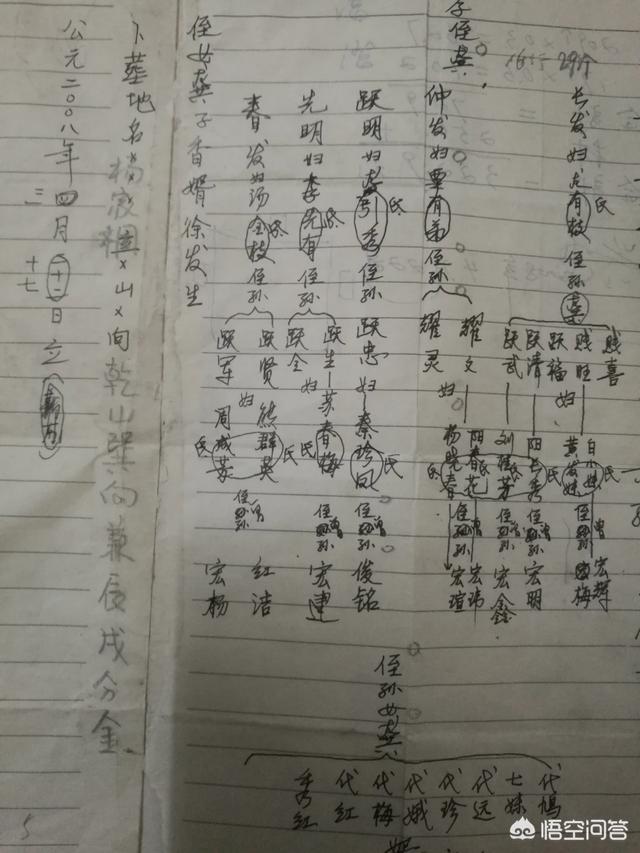 29个
长发妇龙有枝氏侄孙龚
贱喜
贱旺
跃福
跃清
跃武
妇
白小妹氏
黄发妹
阳长秀
刘桂芳氏
侄曾孙
宏辉
国梅
侄曾孙
宏明
侄曾孙
宏鑫
子侄龚
仲发妇覃有弟侄孙
耀文
耀灵
妇
阳春花氏
杨晓春氏
侄曾孙
宏玮
宏瑄
跃明妇秀氏侄孙
跃忠妇秦珍凤氏
侄曾孙
俊铭
先明妇李先有氏侄孙
跃生
跃全
妇
苏春梅氏
侄曾孙
宏建
春发妇汤金枝氏侄孙
跃贤
跃军
妇
熊群英氏
周成芬氏
侄曾孙
红洁
宏杨
侄女龚子香婿徐发生
侄孙女龚
代鸠
七妹
代远
代珍
代娥
代梅
代红
秀红
卜葬地名杨家×山×向乾山巽向兼辰戌分金
公元二00八年四月十二日立
三
十七
5
悟空问答